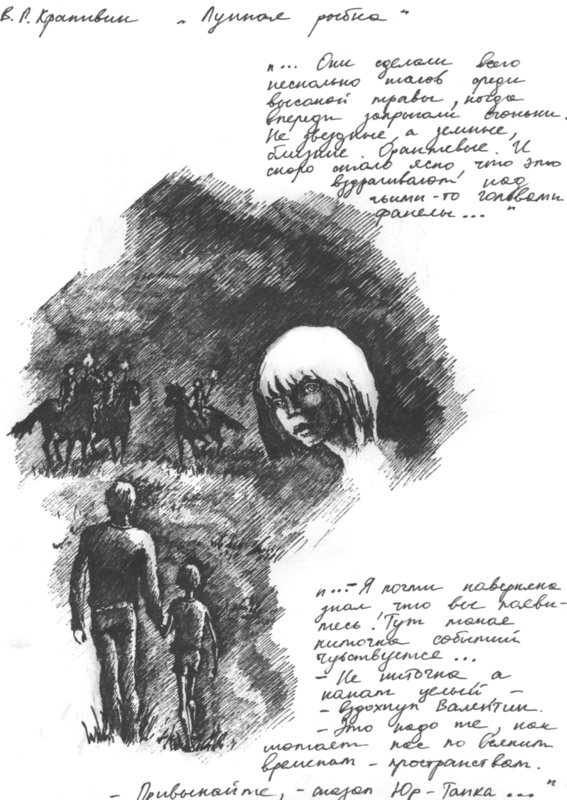 В. П. Крапивин „Лунная рыбка“
„... Они сделали всего
несколько шагов среди
высокой травы, когда
впереди запрыгали огоньки.
Не звездные, а земные,
близкие. Оранжевые. И
скоро стало ясно, что это
вздрагивают над
чьими-то головами
факелы... “
„... – Я почти наверняка
знал что вы появи-
тесь! Тут такая
ниточка событий
чувствуется ...
– Не ниточка а
канат целый –
– вздохнул Валентин.
– Это надо же, как
мотает нас по всяким
временам – пространствам.
– Привыкайте, – сказал Юр-Танка ... “